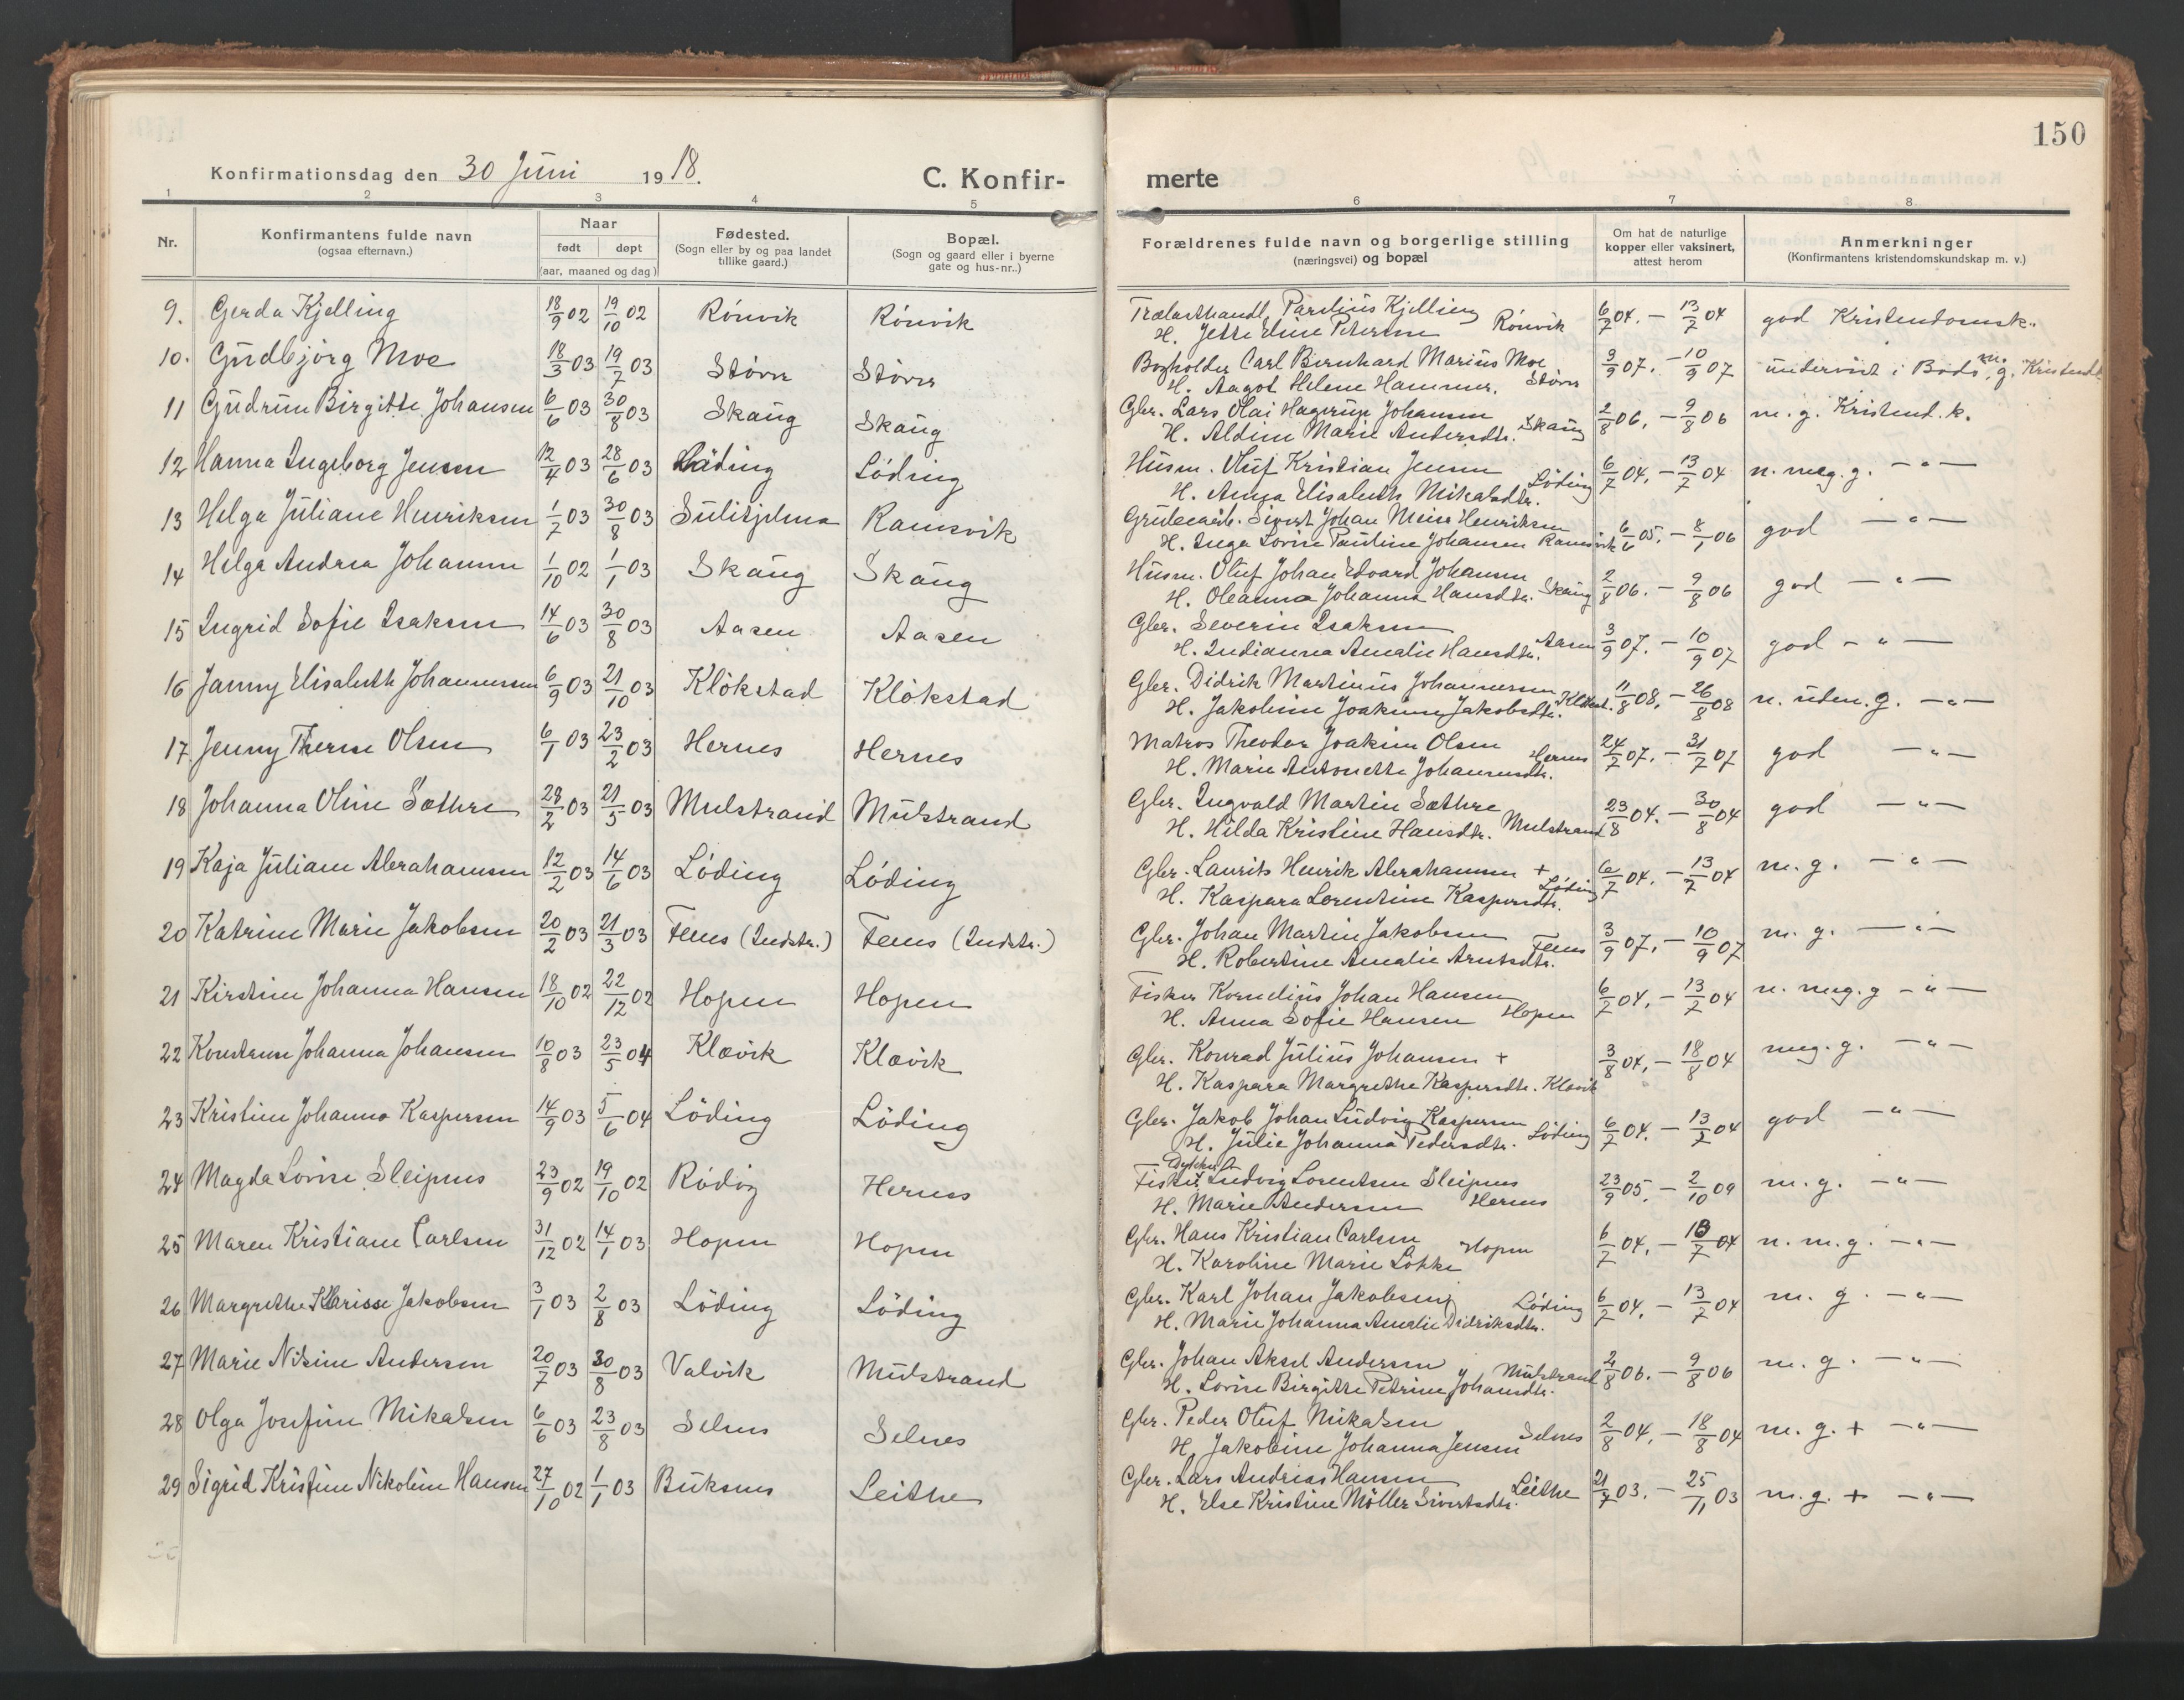 150
Konfirmationsdag den 30 Juni 1918.
C. Konfirmerte
1 2 3 4 5 6 7 8
Nr.
Konfirmantens fulde navn
(ogsaa efternavn.)
Naar
født døpt
(aar, maaned og dag)
Fødested.
(Sogn eller by og paa landet
tillike gaard.)
Bopæl.
(Sogn og gaard eller i byerne
gate og hus-nr..)
Forældrenes fulde navn og borgerlige stilling
(næringsvei) og bopæl
Om hat de naturlige
kopper eller vaksinert,
attest herom
Anmerkninger
(Konfirmantens kristendomskundskap m. v.)
9. Gerda Kjelling 18/9 02 19/10 02 Rönvik Rönvik Trælasthandl. Parelius Kjelling
H. Jette Eline Petersen Rönvik 6/7 04. — 13/7 04 god Kristendomsk.
10. Gudbjörg Moe 18/3 03 19/7 03 Större Större Bogholder Carl Bernhard Marius Moe
H. Aagot Helene Hammer. Större 3/9 07. — 10/9 07 undervist i Bodö, m. g. Kristendk
11 Gudrun Birgitte Johansen 6/6 03 30/8 03 Skaug Skaug Gbr. Lars Olai Hagerup Johansen
H. Aldine Marie Andersdtr. Skaug 2/8 06. — 9/8 06 m. g. Kristend. k.
12 Hanna Ingeborg Jensen 12/4 03 28/6 03 Löding Löding Husm. Oluf Kristian Jensen
H. Anna Elisabeth Mikalsdtr. Löding 6/7 04. — 13/7 04 n. meg. g. — " —
13 Helga Juliane Henriksen 1/7 03 30/8 03 Sulitjelma Ramsvik Grubearb. Sivert Johan Meier Henriksen
H. Inga Lovise Pauline Johansen Ramsvik 6/6 05. — 8/1 06 god — " —
14 Helga Andrea Johansen 1/10 02 1/1 03 Skaug Skaug Husm. Oluf Johan Edvard Johansen
H. Oleanna Johanna Hansdtr. Skaug 2/8 06. — 9/8 06 god — " —
15 Ingrid Sofie Isaksen 14/6 03 30/8 03 Aasen Aasen Gbr. Severin Isaksen
H. Indianna Amalie Hansdtr. Aasen 3/9 07. — 10/9 07 god — " —
16 Janny Elisabeth Johannessen 6/9 03 21/10 03 Klökstad Klökstad Gbr. Didrik Martinus Johannessen
H. Jakobine Joakime Jakobsdtr. Klökst. 11/8 08. — 26/8 08 n. uden. g. — " —
17 Jenny Therese Olsen 6/1 03 23/2 03 Hernes Hernes Matros Theodor Joakim Olsen
H. Marie Antonette Johannesdtr. Hernes 24/7 07. — 31/7 07 god — " —
18 Johanna Oline Sæthre 28/2 03 21/5 03 Mulstrand Mulstrand Gbr. Ingvald Martin Sæthre
H. Hilda Kristine Hansdtr. Mulstrand 23/8 04. — 30/8 04 god — " —
19 Kaja Juliane Abrahamsen 12/2 03 14/6 03 Löding Löding Gbr. Laurits Henrik Abrahamsen +
H. Kaspara Lorentine Kaspersdtr. Löding 6/7 04. — 13/7 04 m. g. — " —
20 Katrine Marie Jakobsen 20/2 03 21/3 03 Fenes (Indstr.) Fenes (Indstr.) Gbr. Johan Martin Jakobsen
H. Robertine Amalie Arntsdtr. Fenes 3/9 07. — 10/9 07 m. g. — " —
21 Kirstine Johanna Hansen 18/10 02 22/12 02 Hopen Hopen Fisker Kornelius Johan Hansen
H. Anna Sofie Hansen Hopen 6/7 04. — 13/7 04 n. meg. g — " —
22 Konstanse Johanna Johansen 10/8 03 23/5 04 Klævik Klævik Gbr. Konrad Julius Johansen +
H. Kaspara Margrethe Kaspersdtr. Klævik 3/8 04. — 18/8 04 meg. g. — " —
23 Kristine Johanna Kaspersen 14/9 03 5/6 04 Löding Löding Gbr. Jakob Johan Ludvig Kaspersen
H. Julie Johanna Pedersdtr. Löding 6/7 04. — 13/7 04 god — " —
24 Magda Lovise Sleipnes 23/9 02 19/10 02 Rödöy Hernes Fisker Ludvig Lorentsen Sleipnes
H. Marie Andersen Hernes 23/9 05. — 2/10 09 m. g. — " —
25 Maren Kristiane Carlsen 31/12 02 14/1 03 Hopen Hopen Gbr. Hans Kristian Carlsen
H. Karoline Marie Lökke Hopen 6/7 04. — 13/7 04 n. m. g. — " —
26 Margrethe Klarisse Jakobsen 3/1 03 2/8 03 Löding Löding Gbr. Karl Johan Jakobsen
H. Marie Johanna Amalie Didriksdtr. Löding 6/7 04. — 13/7 04 m. g. — " —
27 Marie Nikine Andersen 20/7 03 30/8 03 Valvik Mulstrand Gbr. Johan Aksel Andersen
H. Lovise Birgitte Petrine Johansdtr. Mulstrand 2/8 06. — 9/8 06 m. g. — " —
28 Olga Josefine Mikalsen 6/6 03 23/8 03 Selnes Selnes Gbr. Peder Oluf Mikalsen
H. Jakobine Johanna Jensen Selnes 2/8 04. — 18/8 04 m. g. + — " —
29 Sigrid Kristine Nikoline Hansen 27/10 02 1/1 03 Buksnes Leithe Gbr. Lars Andreas Hansen
H. Else Kristine Möller Sivertsdtr. Leithe 21/7 03. — 25/11 03 m. g. + — " —